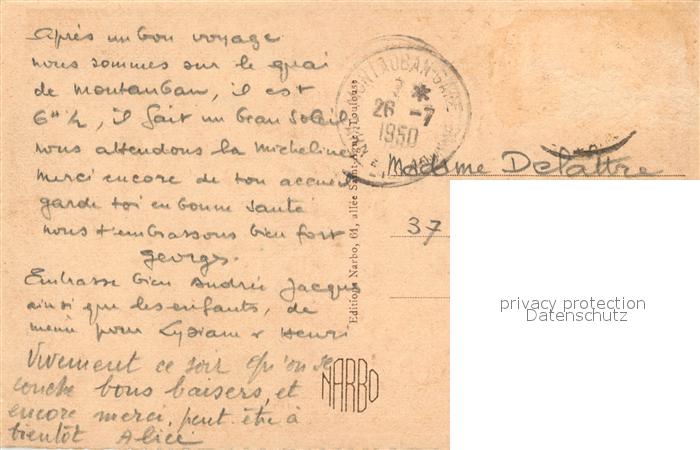 Après un bon voyage
nous sommes sur le quai
de montauban, il est
6h ½, il fait un beau soleil
nous attendons la micheline
merci encore de ton accueil
garde toi en bonne santé
nous t'embrassons bien fort
georges.
Embrasse bien Andrée Jacques
ainsi que les enfants, de
même pour Lydiane & Henri
Vivement ce soir qu'on se
couche bons baisers, et
encore merci, peut être à
bientôt Alice
Editions Narbo, 61, allée Saint-Agne, Toulouse
NARBO
MONTAUBAN-GARE
26 -7
1950
Madame Delattre
37
privacy protection
Datenschutz